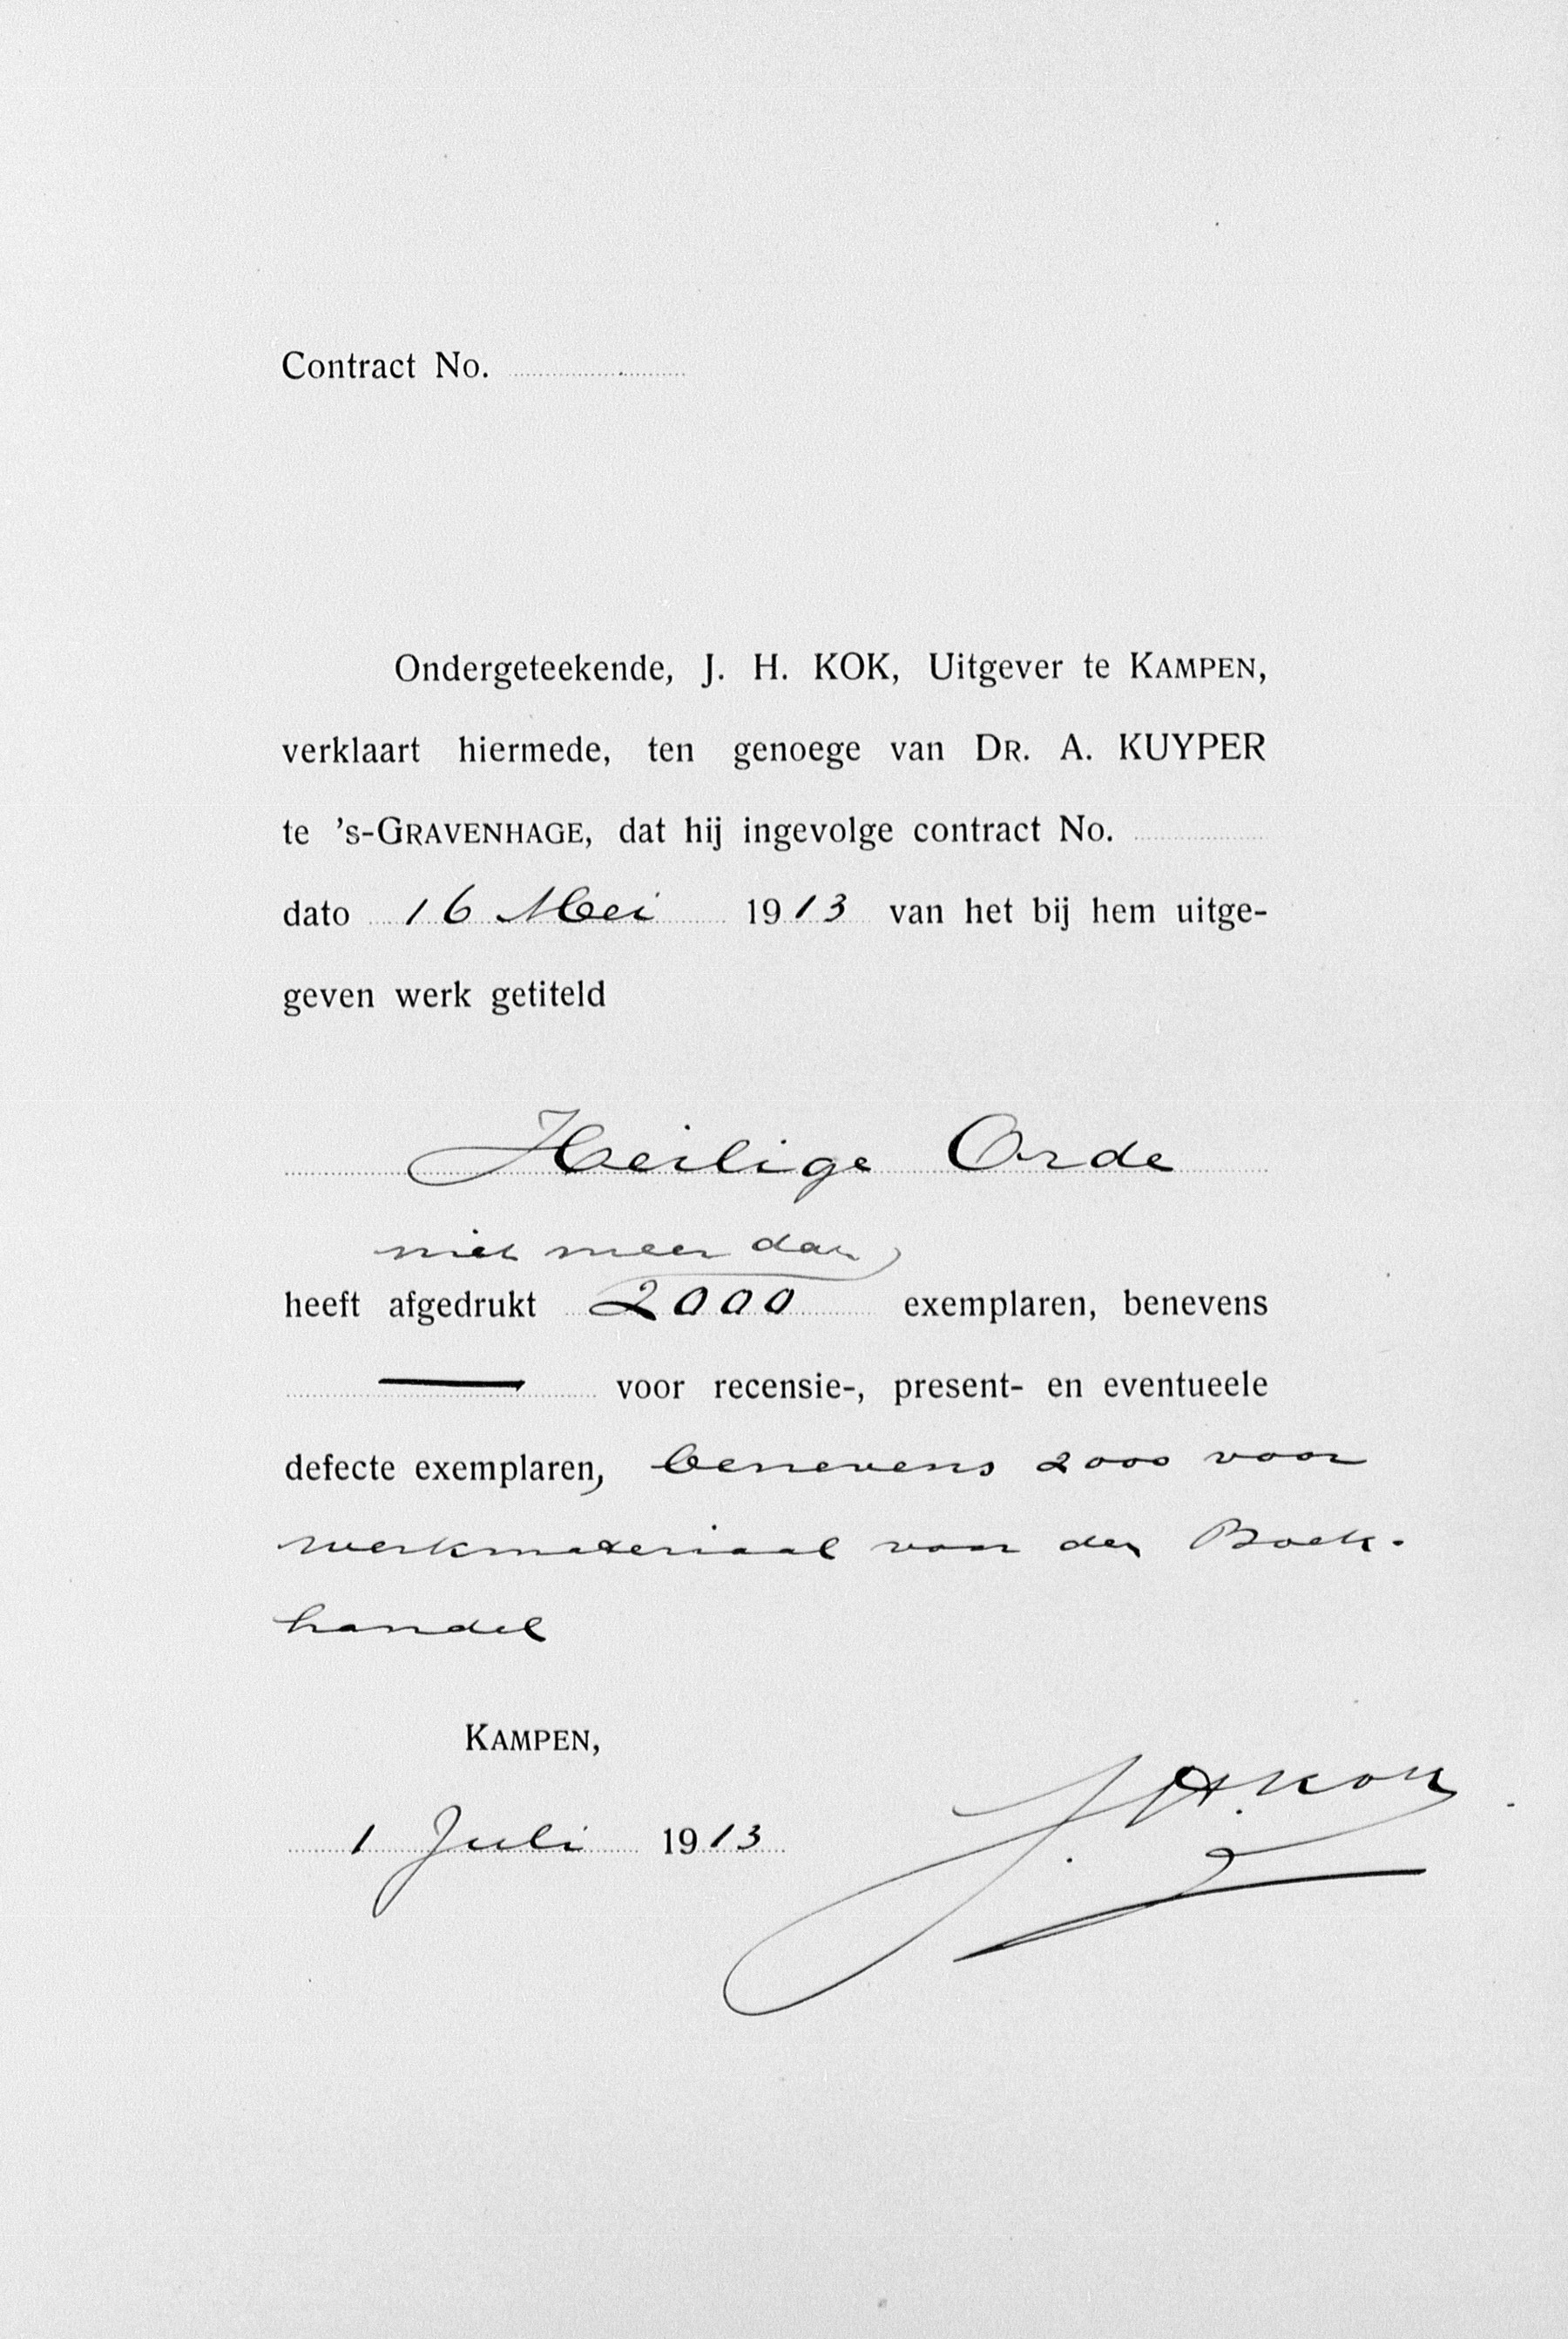 Contract No.
Ondergeteekende, J. H. KOK, Uitgever te KAMPEN,
verklaart hiermede, ten genoege van DR. A. KUYPER
te 's-GRAVENHAGE, dat hij ingevolge contract No.
dato 16 Mei 1913 van het bij hem uitge-
geven werk getiteld
Heilige Orde
niet meer dan
heeft afgedrukt 2000 exemplaren, benevens
— voor recensie-, present- en eventueele
defecte exemplaren, benevens 2000 voor
werkmateriaal voor den Boek-
handel
KAMPEN,
1 Juli 1913
J. H. Kok